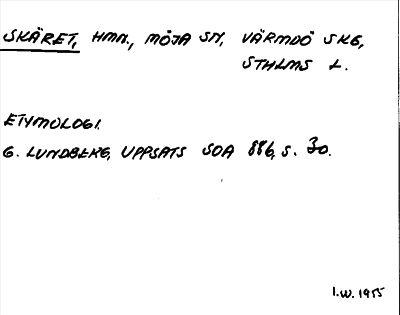 SKÄRET, HMN., MÖJA SN, VÄRMDÖ SKG,
STHLMS L.
ETYMOLOGI.
G. LUNDBERG, UPPSATS SOA 886, S. 30.
I.W. 1955